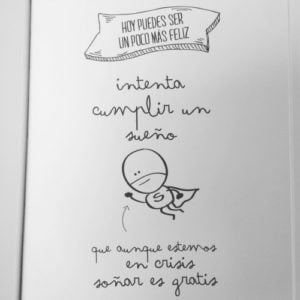 HOY PUEDES SER
UN POCO MÁS FELIZ
intenta
cumplir un
sueño
S
que aunque estemos
en crisis
soñar es gratis